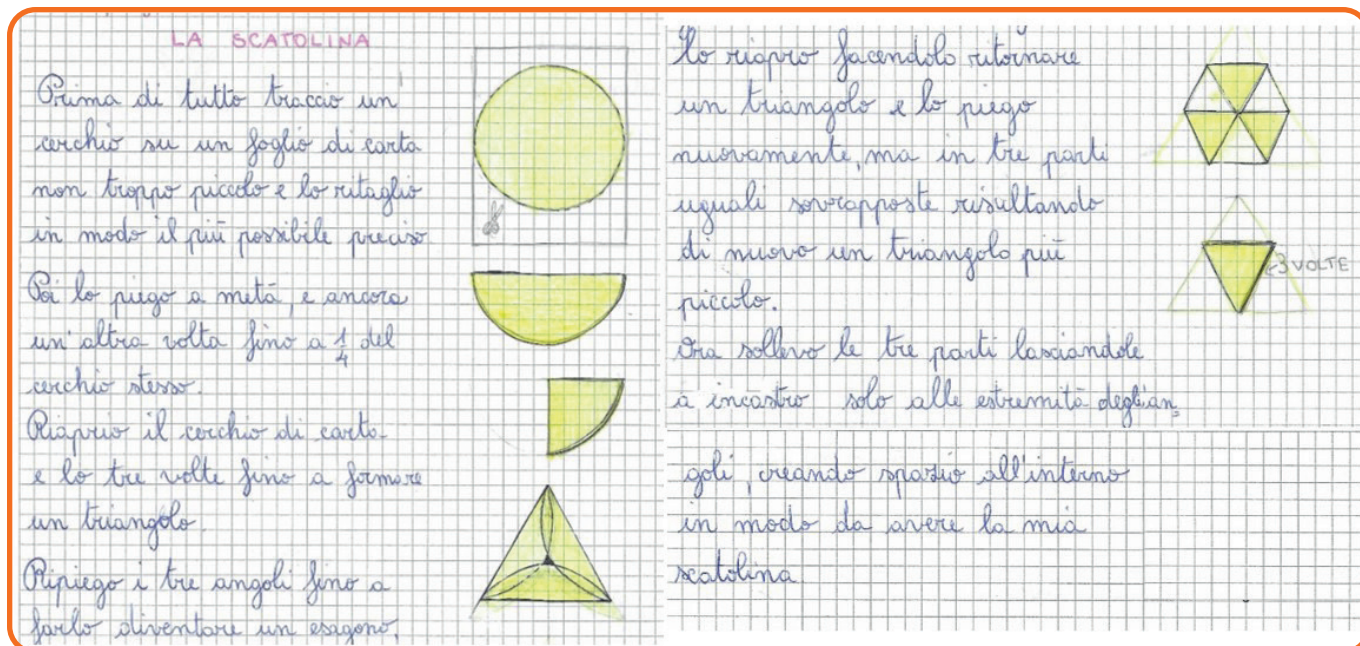 LA SCATOLINA
Prima di tutto traccio un
cerchio su un foglio di carta
non troppo piccolo e lo ritaglio
in modo il più possibile preciso
Poi lo piego a metà, e ancora
un'altra volta fino a 1/4 del
cerchio stesso.
Riaprio il cerchio di carta
e lo tre volte fino a formare
un triangolo.
Ripiego i tre angoli fino a
farlo diventare un esagono,
lo riapro facendolo ritornare
un triangolo e lo piego
nuovamente, ma in tre parti
uguali sovrapposte risultando
di nuovo un triangolo più
piccolo.
3 VOLTE
Ora sollevo le tre parti lasciandole
a incastro solo alle estremità degli an=
goli, creando spazio all'interno
in modo da avere la mia
scatolina.